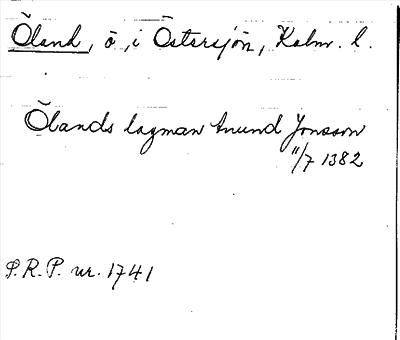 Öland, ö, i Östersjön, Kalm. l.
Ölands lagman Anund Jonsson
11/7 1382
S.R.P. nr. 1741